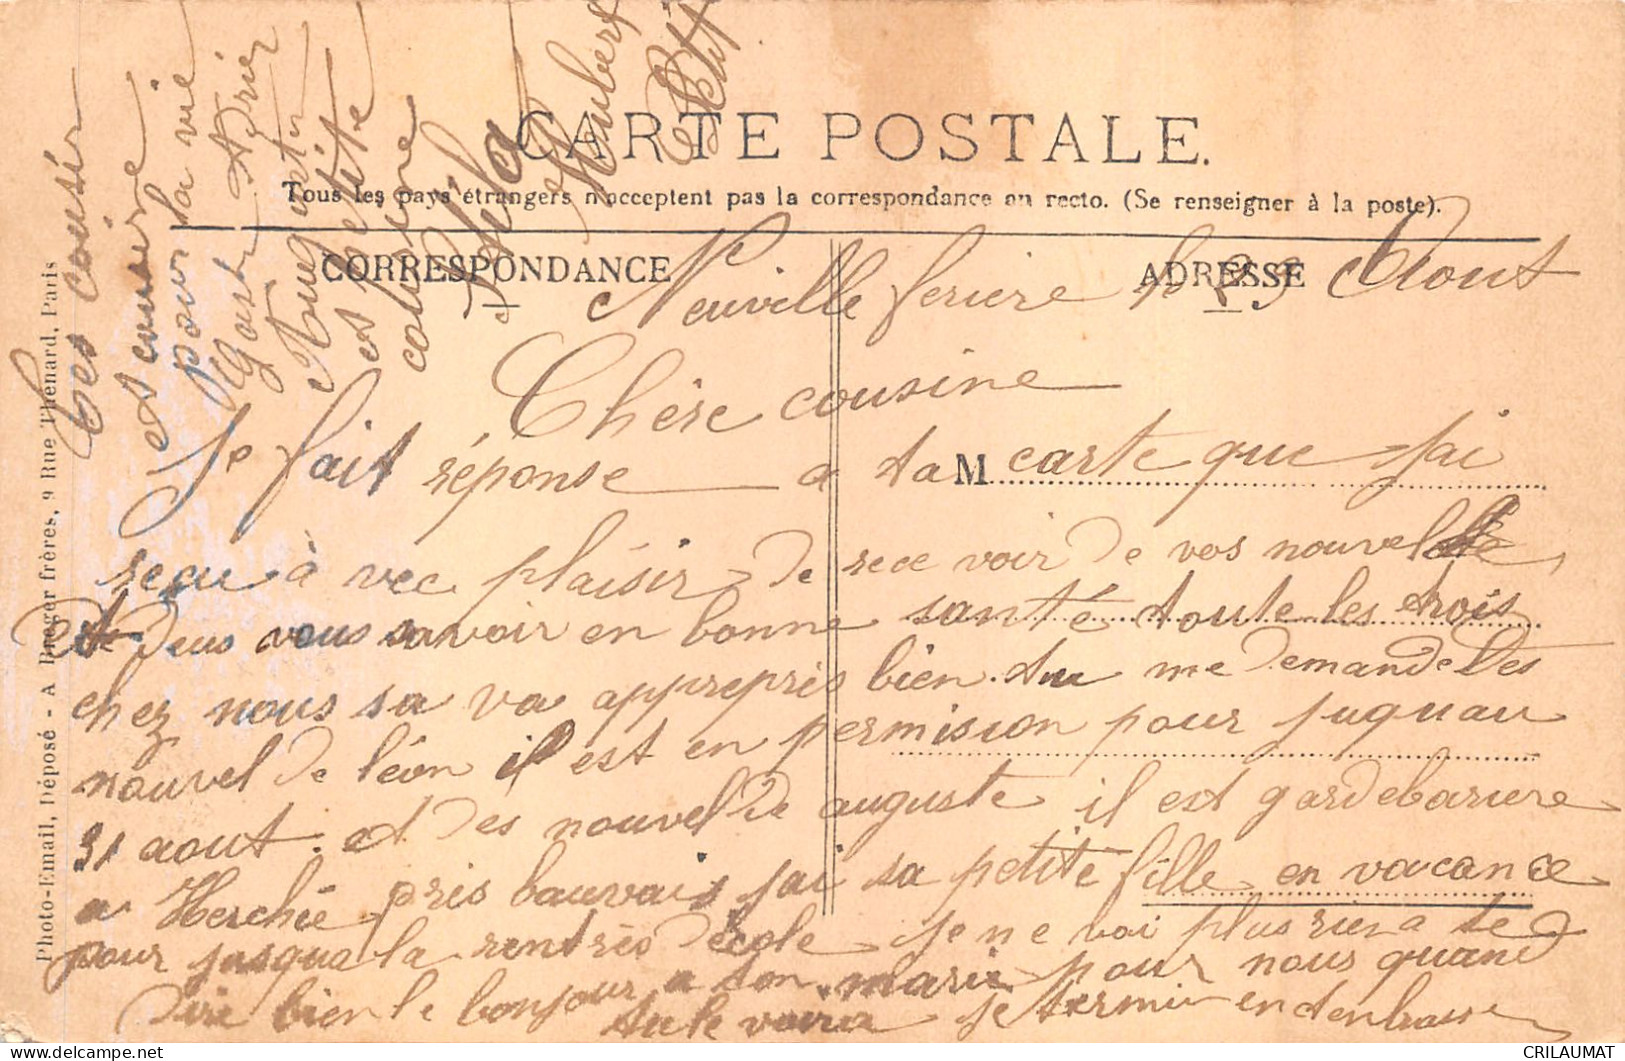 CARTE POSTALE.
Tous les pays étrangers n'acceptent pas la correspondance au recto. (Se renseigner à la poste).
CORRESPONDANCE
ADRESSE
Neuville feriere le 23 Aout
Chère cousine
Je fait réponse a ta M carte que jai
reçu à vec plaisir de rece voir de vos nouvelle
et deus vous savoir en bonne santé toute les trois
chez nous sa va appreprès bien. tu me demande des
nouvel de léon il est en permision pour juquau
31 aout. et des nouvel de auguste il est gardebariere
a Herchie près bauvais jai sa petite fille en vacance
pour jusqua la rentrès décole je ne voi plus rien a te
dire bien le bonjour a ton marie pour nous quand
tu le voira je termine en tenbrasse
tes cousin
et cousine
pour la vie
Petit
Photo-Email, Déposé - A Breger frères, 9 Rue Thénard, Paris
CRILAUMAT